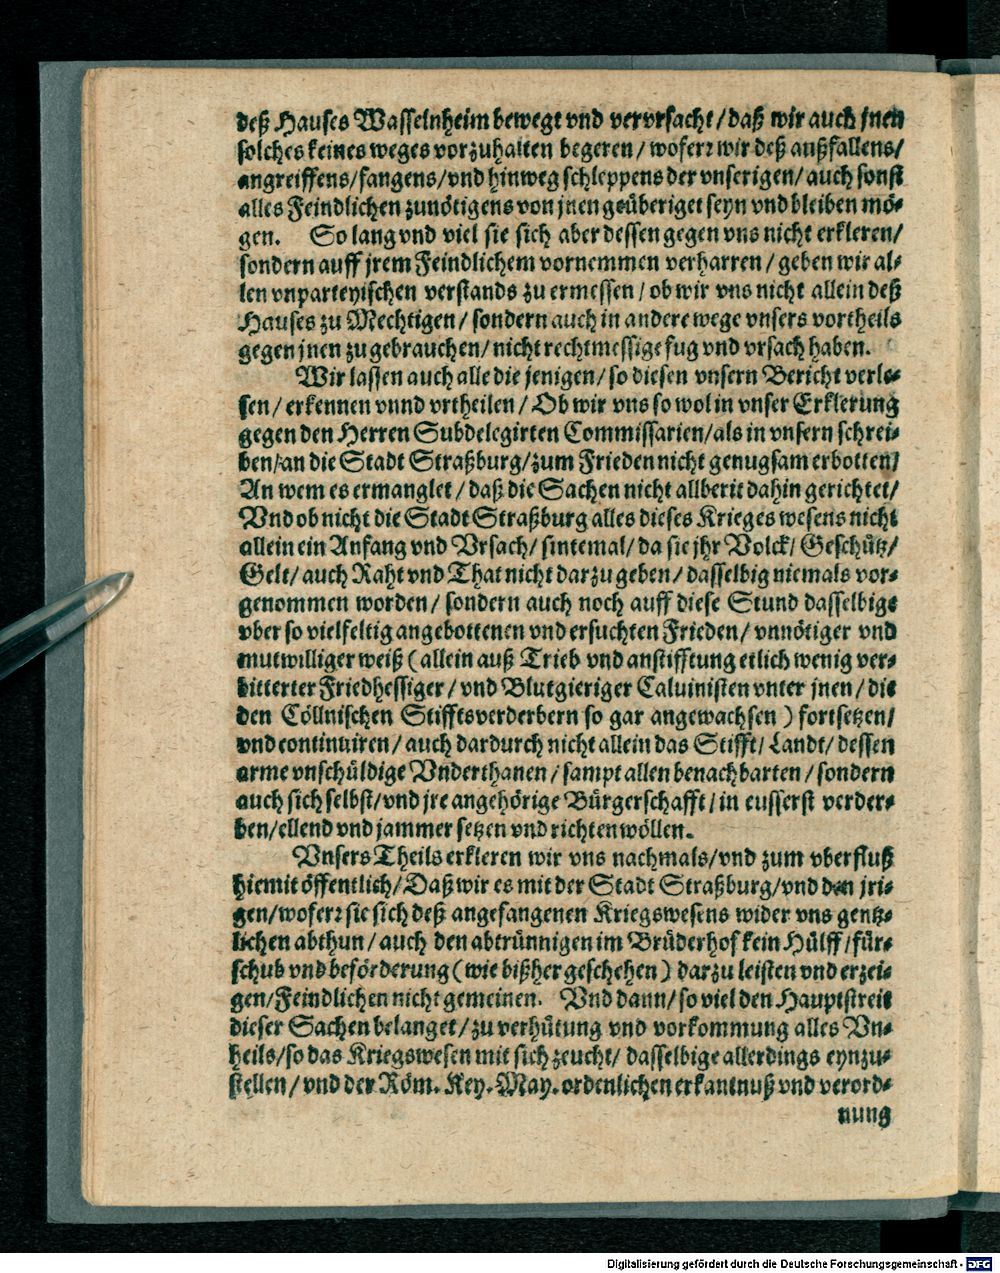 deß Hauses Wasselnheim bewegt vnd vervrsacht/daß wir auch jnen
solches keines weges vorzuhalten begeren/woferr wir deß außfallens/
angreiffens/fangens/vnd hinweg schleppens der vnserigen/auch sonst
alles Feindlichen zunötigens von jnen geüberiget seyn vnd bleiben mö-
gen. So lang vnd viel sie sich aber dessen gegen vns nicht erkleren/
sondern auff jrem Feindlichem vornemmen verharren/geben wir al-
len vnparteyischen verstands zu ermessen/ob wir vns nicht allein deß
Hauses zu Mechtigen/sondern auch in andere wege vnsers vortheils
gegen jnen zu gebrauchen/nicht rechtmessige fug vnd vrsach haben.
Wir lassen auch alle die jenigen/so diesen vnsern Bericht verle-
sen/erkennen vnnd vrtheilen/Ob wir vns so wol in vnser Erklerung
gegen den Herren Subdelegirten Commissarien/als in vnsern schrei-
ben/an die Stadt Straßburg/zum Frieden nicht genugsam erbotten/
An wem es ermanglet/daß die Sachen nicht allberit dahin gerichtet/
Vnd ob nicht die Stadt Straßburg alles dieses Krieges wesens nicht
allein ein Anfang vnd Vrsach/sintemal/da sie jhr Volck/Geschütz/
Gelt/auch Raht vnd That nicht darzu geben/dasselbig niemals vor-
genommen worden/sondern auch noch auff diese Stund dasselbige
vber so vielfeltig angebottenen vnd ersuchten Frieden/vnnötiger vnd
mutwilliger weiß (allein auß Trieb vnd anstifftung etlich wenig ver-
bitterter Friedhessiger/vnd Blutgieriger Caluinisten vnter jnen/die
den Cöllnischen Stifftsverderbern so gar angewachsen) fortsetzen/
vnd continuiren/auch dardurch nicht allein das Stifft/Landt/dessen
arme vnschüldige Vnderthanen/sampt allen benachbarten/sondern
auch sich selbst/vnd jre angehörige Bürgerschafft/in eusserst verder-
ben/ellend vnd jammer setzen vnd richten wöllen.
Vnsers Theils erkleren wir vns nachmals/vnd zum vberfluß
hiemit öffentlich/Daß wir es mit der Stadt Straßburg/vnd den jri-
gen/woferr sie sich deß angefangenen Kriegswesens wider vns gentz-
lichen abthun/auch den abtrünnigen im Brüderhof kein Hülff/für-
schub vnd beförderung (wie bißher geschehen) darzu leisten vnd erzei-
gen/Feindlichen nicht gemeinen. Vnd dann/so viel den Hauptstreit
dieser Sachen belanget/zu verhütung vnd vorkommung alles Vn-
heils/so das Kriegswesen mit sich zeucht/dasselbige allerdings eynzu-
stellen/vnd der Röm. Key. May. ordenlichen erkantnuß vnd verord-
nung
Digitalisierung gefördert durch die Deutsche Forschungsgemeinschaft - DFG